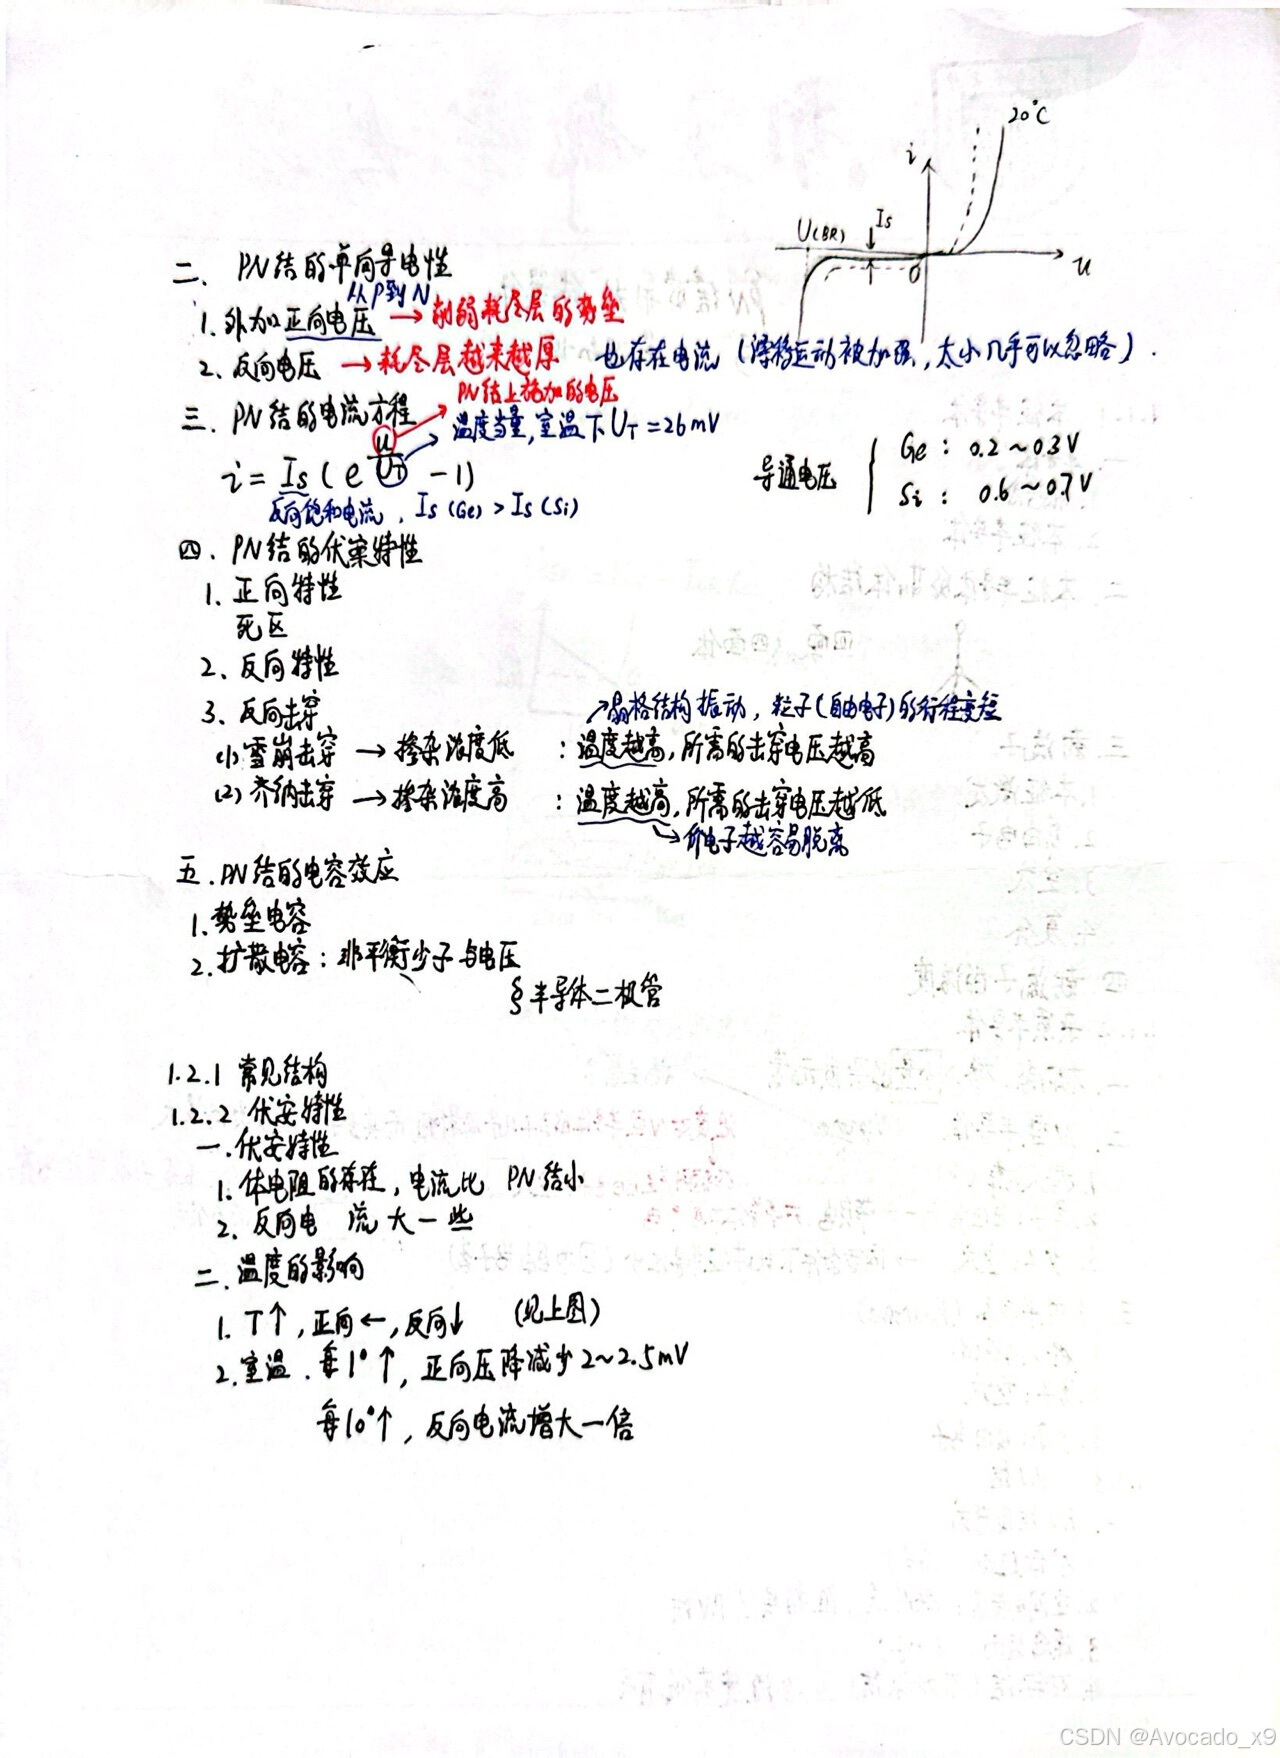 20°C
i
Is
U(BR)
O
u
二、PN结的单向导电性
从P到N
1. 外加正向电压 → 削弱耗尽层的势垒
2. 反向电压 → 耗尽层越来越厚 也存在电流（漂移运动被加强，太小几乎可以忽略）.
三、PN结的电流方程
PN结上施加的电压
温度当量，室温下 U_T = 26mV
i = Is ( e^(u/U_T) - 1)
反向饱和电流， Is(Ge) > Is(Si)
导通电压 { Ge : 0.2 ~ 0.3V
Si : 0.6 ~ 0.7V
四、PN结的伏案特性
1. 正向特性
死区
2. 反向特性
3. 反向击穿
↗晶格结构振动，粒子(自由电子)的行程变短
(1) 雪崩击穿 → 掺杂浓度低 : 温度越高，所需的击穿电压越高
(2) 齐纳击穿 → 掺杂浓度高 : 温度越高，所需的击穿电压越低
→价电子越容易脱离
五.PN结的电容效应
1.势垒电容
2.扩散电容：非平衡少子与电压
§半导体二极管
1.2.1 常见结构
1.2.2 伏安特性
一.伏安特性
1. 体电阻的存在，电流比 PN结小
2. 反向电 流大一些
二.温度的影响
1. T↑，正向←，反向↓ (见上图)
2.室温．每1°↑，正向压降减少2~2.5mV
每10°↑，反向电流增大一倍
CSDN @Avocado_x9